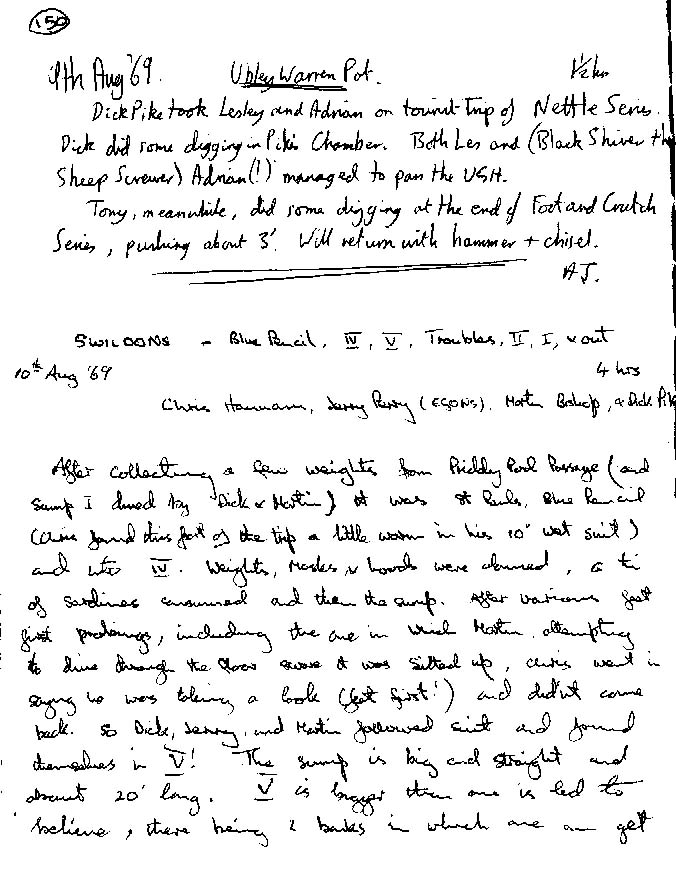 150
9th Aug '69. Ubley Warren Pot. 1½ hr
Dick Pike took Lesley and Adrian on tourist-trip of Nettle Series.
Dick did some digging in Pike's Chamber. Both Les and (Black Shiver the
Sheep Screwer) Adrian(!) managed to pass the USH.
Tony, meanwhile, did some digging at the end of Foot and Crutch
Series, pushing about 3'. Will return with hammer + chisel.
AJ.
SWILDONS - Blue Pencil, IV, V, Troubles, II, I, & out
10th Aug '69 4 hrs
Chris Hannam, Jerry Perry (EGONS), Martin Bishop, & Dick Pike
After collecting a few weights from Priddy Pool Passage (and
Sump I dived by Dick & Martin) it was St Pauls, Blue Pencil
(Chris found this part of the trip a little warm in his 10' wet suit)
and into IV. Weights, Masks, & hoods were donned, a tin
of sardines consumed and then the sump. After various feet
first probings, including the one in which Martin attempting
to dive through the floor swore it was silted up, Chris went in
saying he was taking a look (feet first!) and didn't come
back. So Dick, Jerry, and Martin followed suit and found
themselves in V! The sump is big and straight and
about 20' long. V is bigger than one is led to
believe, there being 2 banks in which one can get